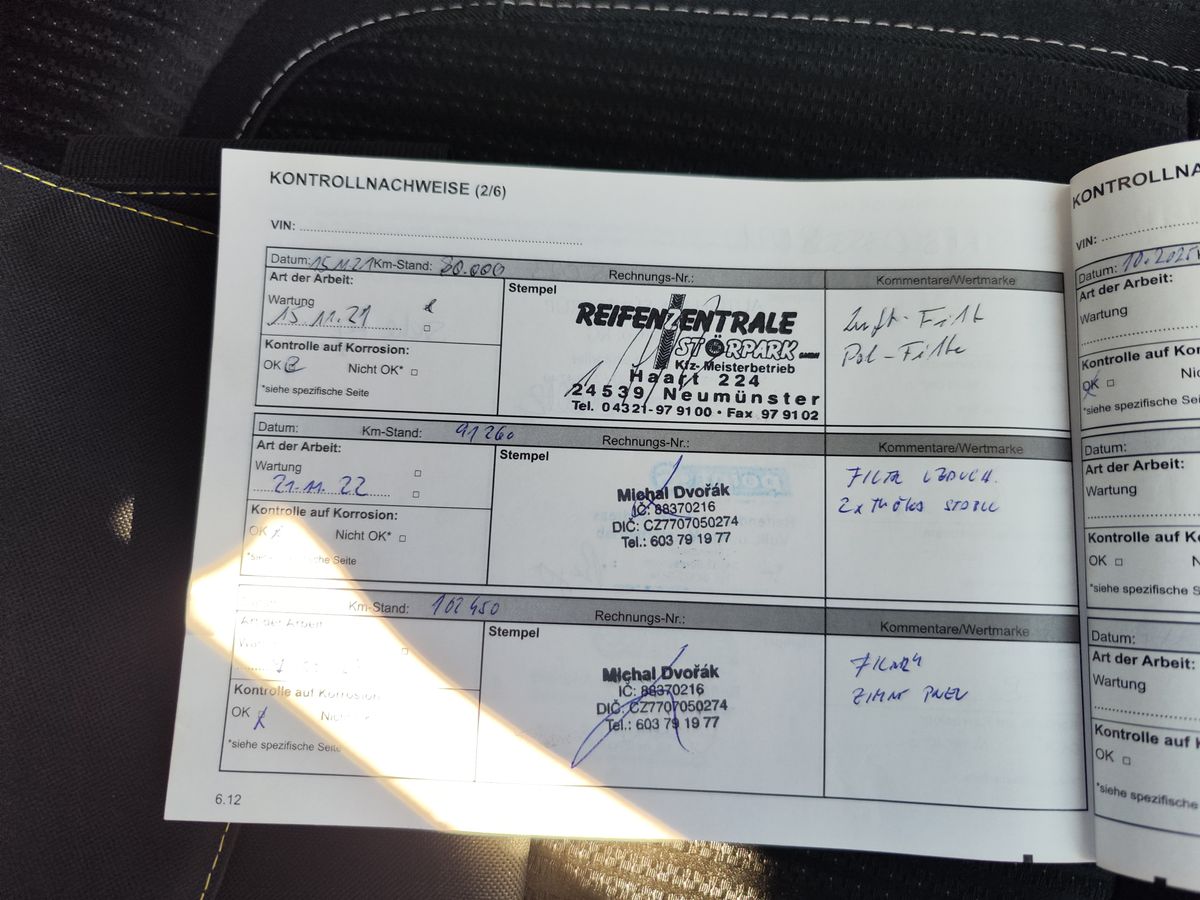 KONTROLLNACHWEISE (2/6)
VIN:
Datum: 15.11.21 Km-Stand: 80.000 Rechnungs-Nr.: Kommentare/Wertmarke
Art der Arbeit:
Stempel
Wartung
15.11.21
Kontrolle auf Korrosion:
OK Nicht OK*
*siehe spezifische Seite
REIFENZENTRALE
STÖRPARK GMBH
Kfz- Meisterbetrieb
Haart 224
24539 Neumünster
Tel. 04321-97 91 00 • Fax 97 91 02
Luft-Filt
Pol-Filte
Datum: Km-Stand: 91260 Rechnungs-Nr.: Kommentare/Wertmarke
Art der Arbeit:
Stempel
Wartung
21.11.22
Kontrolle auf Korrosion:
OK Nicht OK*
Michal Dvořák
IČ: 88370216
DIČ: CZ7707050274
Tel.: 603 79 19 77
2x
Km-Stand: 102450 Rechnungs-Nr.: Kommentare/Wertmarke
Art der Arbeit
Stempel
Kontrolle auf Korrosion
OK
*siehe spezifische Seite
Michal Dvořák
IČ: 88370216
DIČ: CZ7707050274
Tel.: 603 79 19 77
ZIMNI PNEU
6.12
KONTROLLNA
VIN:
Datum: 10.2025
Art der Arbeit:
Wartung
Kontrolle auf Ko
OK
*siehe spezifische Sei
Datum:
Art der Arbeit:
Wartung
Kontrolle auf Ko
OK
*siehe spezifische S
Datum:
Art der Arbeit:
Wartung
Kontrolle auf K
OK
*siehe spezifische